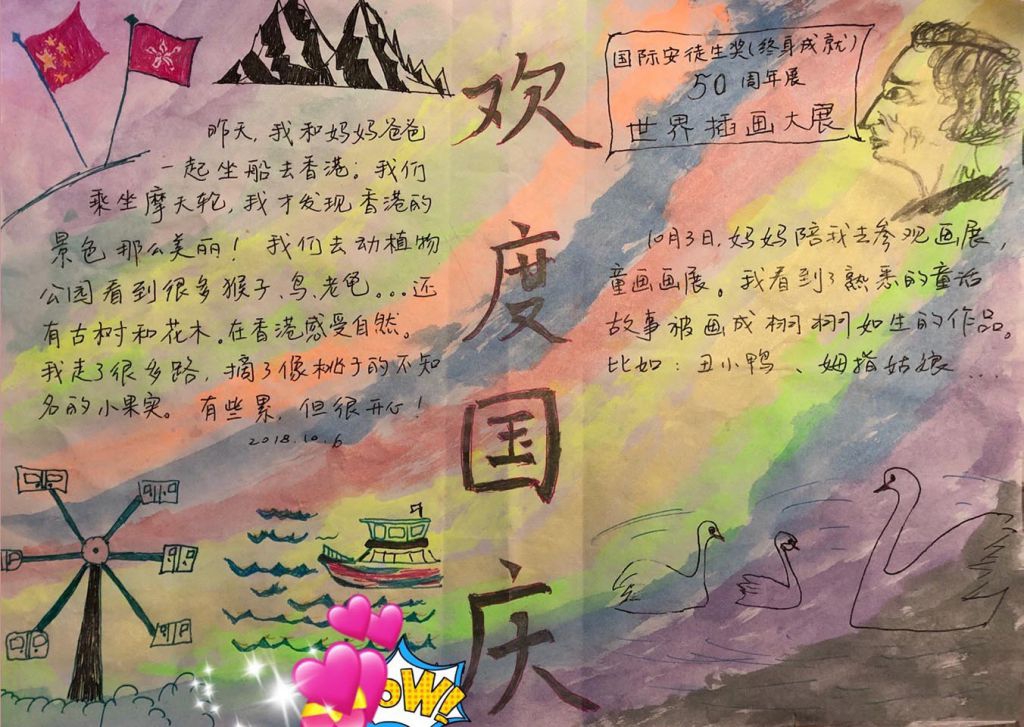 欢度国庆
昨天,我和妈妈爸爸
一起坐船去香港;我们
乘坐摩天轮,我才发现香港的
景色那么美丽!我们去动植物
公园看到很多猴子、鸟、老龟。。。还
有古树和花木。在香港感受自然。
我走了很多路,摘了像桃子的不知
名的小果实。有些累,但很开心!
2018.10.6
国际安徒生奖(终身成就)
50周年展
世界插画大展
10月3日,妈妈陪我去参观画展,
童画画展。我看到了熟悉的童话
故事被画成栩栩如生的作品。
比如:丑小鸭、姆指姑娘...
WOW!